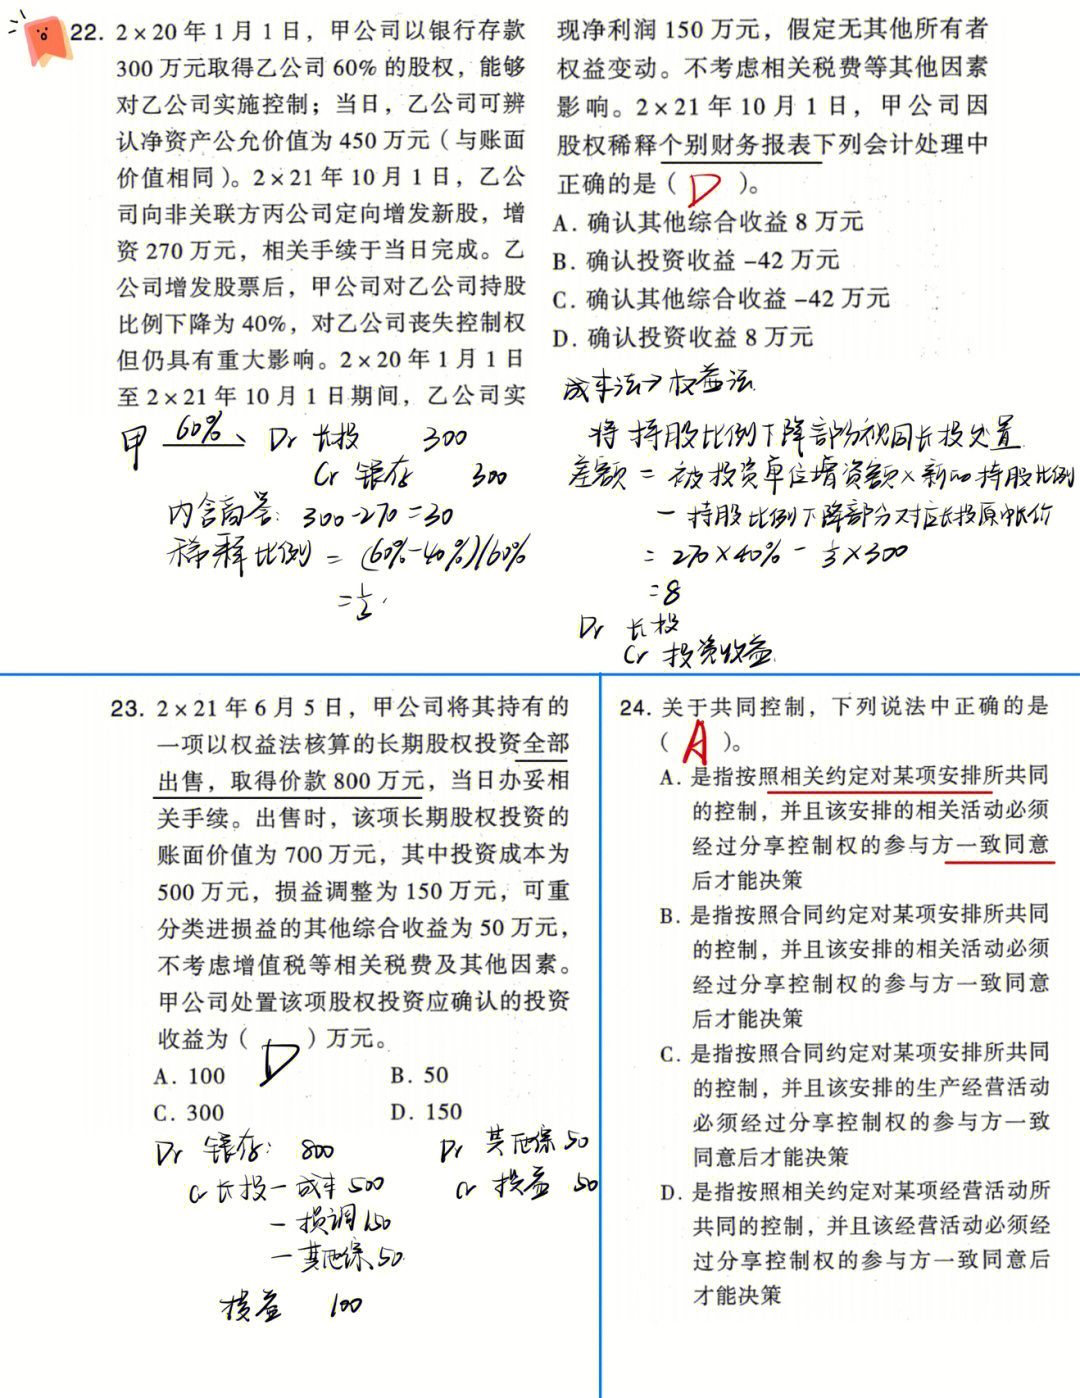 22. 2×20年1月1日，甲公司以银行存款
300万元取得乙公司60%的股权，能够
对乙公司实施控制；当日，乙公司可辨
认净资产公允价值为450万元（与账面
价值相同）。2×21年10月1日，乙公
司向非关联方丙公司定向增发新股，增
资270万元，相关手续于当日完成。乙
公司增发股票后，甲公司对乙公司持股
比例下降为40%，对乙公司丧失控制权
但仍具有重大影响。2×20年1月1日
至2×21年10月1日期间，乙公司实
现净利润150万元，假定无其他所有者
权益变动。不考虑相关税费等其他因素
影响。2×21年10月1日，甲公司因
股权稀释个别财务报表下列会计处理中
正确的是（ D ）。
A. 确认其他综合收益8万元
B. 确认投资收益-42万元
C. 确认其他综合收益-42万元
D. 确认投资收益8万元
甲 60% Dr 长投 300
Cr 银存 300
内含商誉：300-270=30
稀释比例 = (60%-40%)/60%
成本法→权益法
将持股比例下降部分视同长投处置
差额 = 被投资单位增资额×新的持股比例
- 持股比例下降部分对应长投原账价
= 270×40% - ⅓×300
=8
Dr 长投
Cr 投资收益
23. 2×21年6月5日，甲公司将其持有的
一项以权益法核算的长期股权投资全部
出售，取得价款800万元，当日办妥相
关手续。出售时，该项长期股权投资的
账面价值为700万元，其中投资成本为
500万元，损益调整为150万元，可重
分类进损益的其他综合收益为50万元，
不考虑增值税等相关税费及其他因素。
甲公司处置该项股权投资应确认的投资
收益为（ D ）万元。
A. 100 B. 50
C. 300 D. 150
Dr 银存： 800
Cr 长投-成本 500
-损调 150
-其他综 50
投益 100
Dr 其他综 50
Cr 投益 50
24. 关于共同控制，下列说法中正确的是
（ A ）。
A. 是指按照相关约定对某项安排所共同
的控制，并且该安排的相关活动必须
经过分享控制权的参与方一致同意
后才能决策
B. 是指按照合同约定对某项安排所共同
的控制，并且该安排的相关活动必须
经过分享控制权的参与方一致同意
后才能决策
C. 是指按照合同约定对某项安排所共同
的控制，并且该安排的生产经营活动
必须经过分享控制权的参与方一致
同意后才能决策
D. 是指按照相关约定对某项经营活动所
共同的控制，并且该经营活动必须经
过分享控制权的参与方一致同意后
才能决策